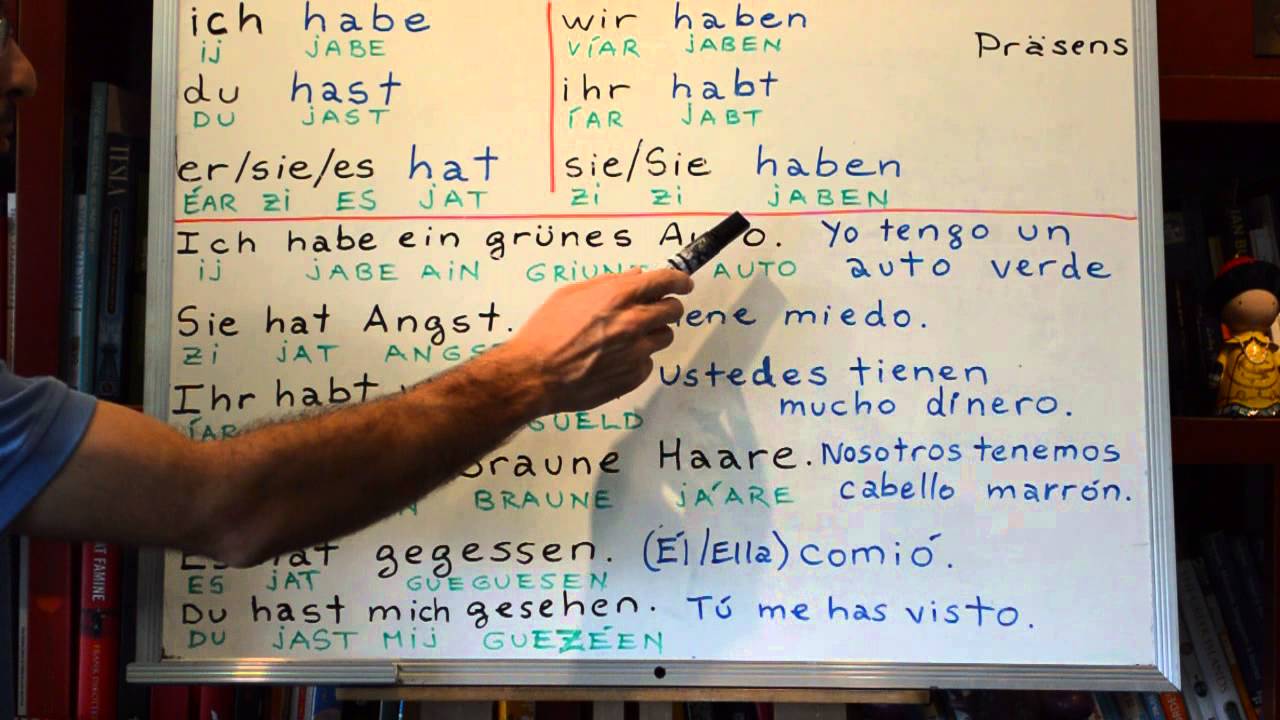 ich habe
ij JABE
du hast
DU JAST
er/sie/es hat
ÉAR Zi ES JAT
wir haben
VÍAR JABEN
ihr habt
ÍAR JABT
sie/Sie haben
Zi Zi JABEN
Präsens
Ich habe ein grünes Auto. Yo tengo un
ij JABE AiN AUTO auto verde
Sie hat Angst. miedo.
Zi JAT
Ihr habt Ustedes tienen
ÍAR GUELD mucho dinero.
Haare. Nosotros tenemos
BRAUNE JA'ARE cabello marrón.
gegessen. (Él/Ella) comió.
ES JAT GUEGUESEN
Du hast mich gesehen. Tú me has visto.
DU JAST MiJ GUEZÉEN
TESLA
FAMINE